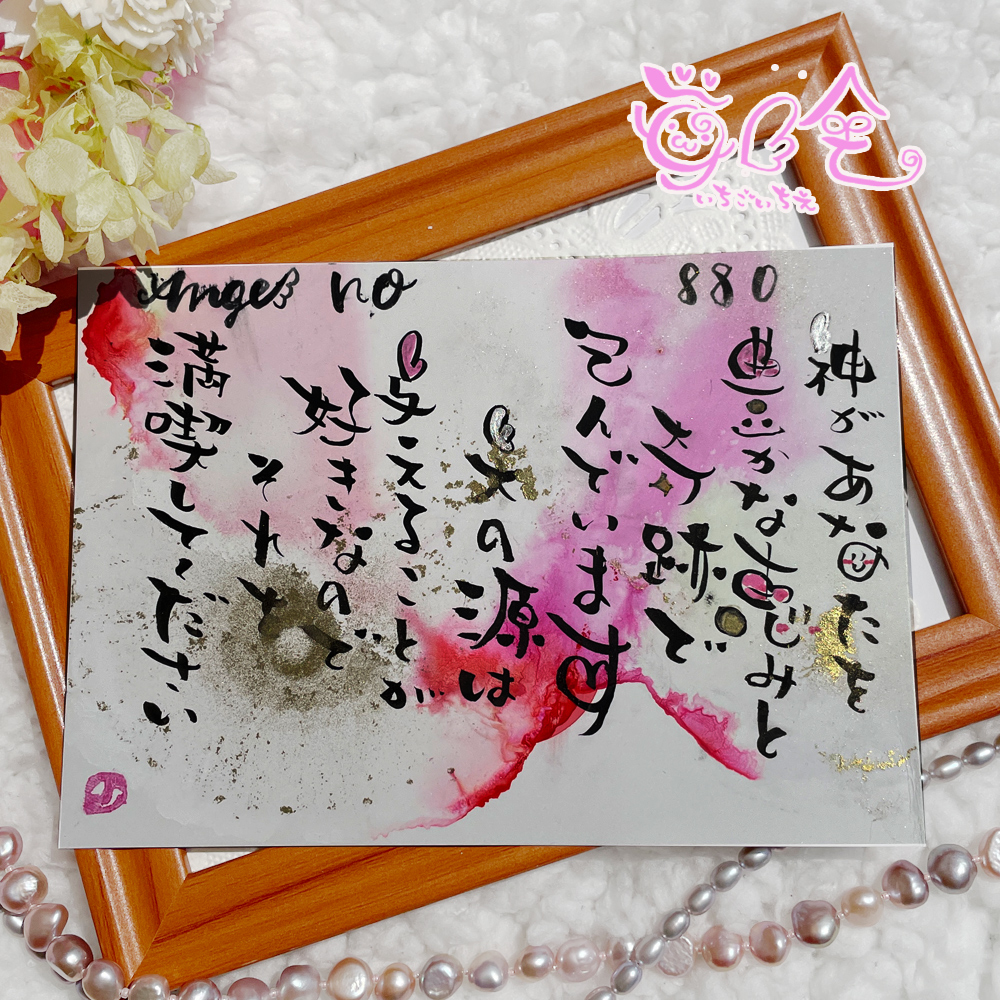 いちごいちえ
Angel no 880
神があなたを
豊かな恵みと
奇跡で
包んでいます
の源は
与えることが
好きなので
それを
満喫してください